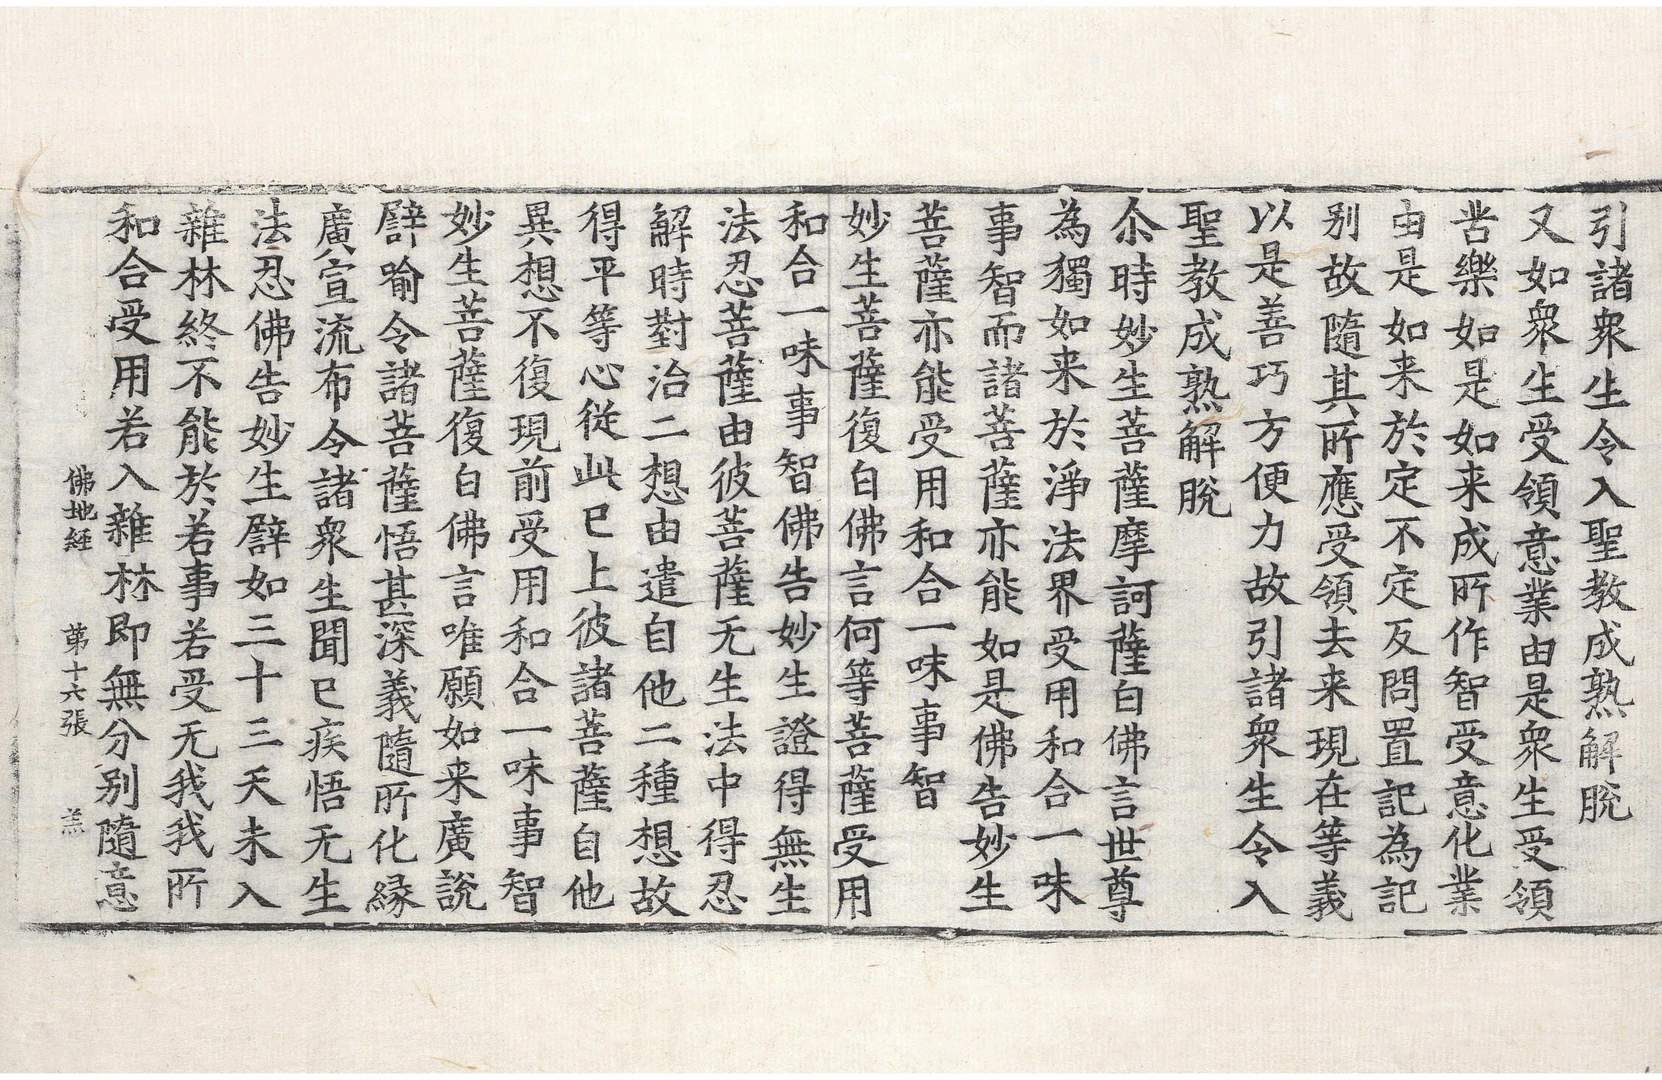 引諸衆生令入聖教成熟解脫
又如衆生受領意業由是衆生受領
苦樂如是如来成所作智受意化業
由是如来於定不定反問置記為記
别故隨其所應受領去来現在等義
以是善巧方便力故引諸衆生令入
聖教成熟解脫
尒時妙生菩薩摩訶薩白佛言世尊
為獨如来於淨法界受用和合一味
事智而諸菩薩亦能如是佛告妙生
菩薩亦能受用和合一味事智
妙生菩薩復白佛言何等菩薩受用
和合一味事智佛告妙生證得無生
法忍菩薩由彼菩薩无生法中得忍
解時對治二想由遣自他二種想故
得平等心從此已上彼諸菩薩自他
異想不復現前受用和合一味事智
妙生菩薩復白佛言唯願如来廣說
譬喻令諸菩薩悟甚深義隨所化縁
廣宣流布令諸衆生聞已疾悟无生
法忍佛告妙生譬如三十三天未入
雜林終不能於若事若受无我我所
和合受用若入雜林即無分别隨意
佛地經 第十六張 羔